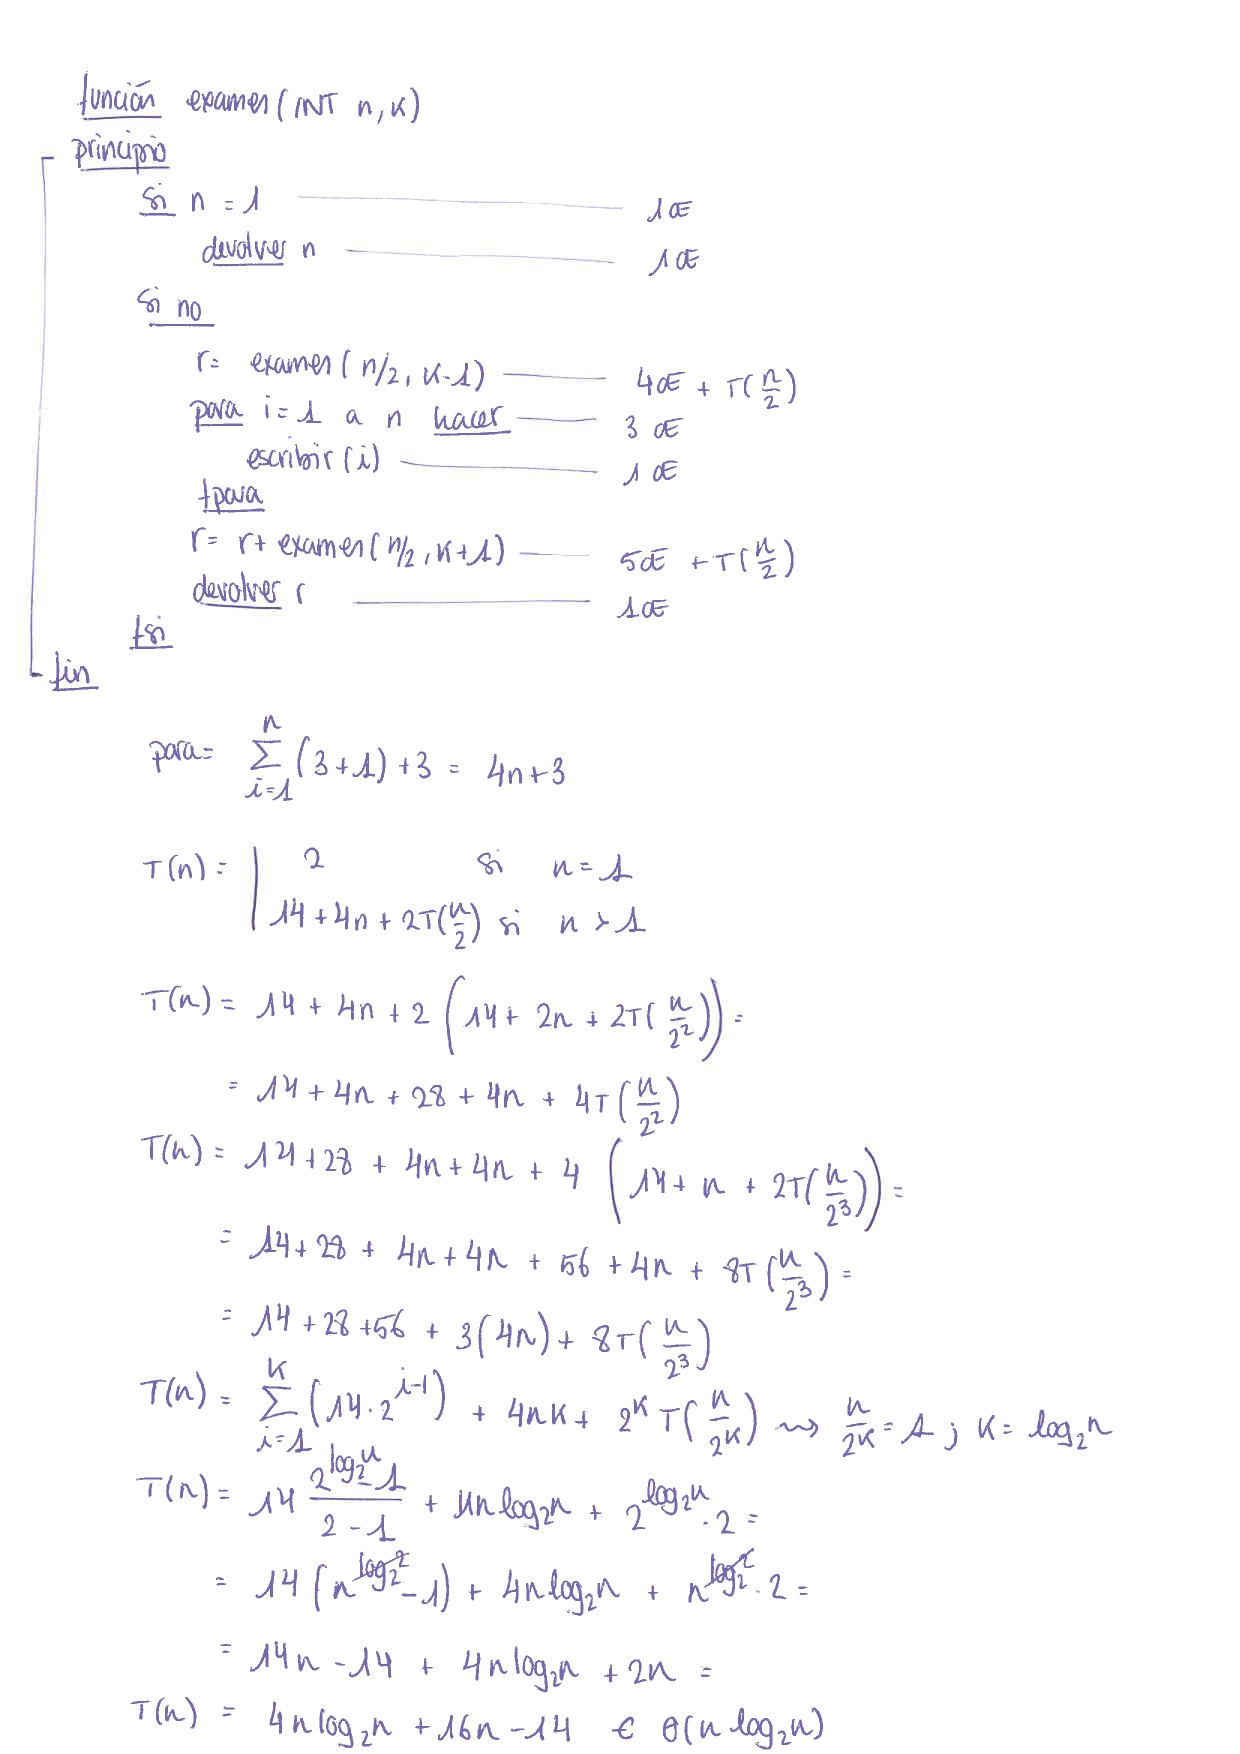 función examen(INT n, K)
principio
si n = 1 1 OE
devolver n 1 OE
Si no
r= examen(n/2, K-1) 4 OE + T(n/2)
para i=1 a n hacer 3 OE
escribir(i) 1 OE
fpara
r= r+ examen(n/2, K+1) 5 OE + T(n/2)
devolver r 1 OE
fsi
fin
para= ∑_{i=1}^{n} (3+1) +3 = 4n+3
T(n) = | 2 si n = 1
14 + 4n + 2T(n/2) si n > 1
T(n) = 14 + 4n + 2 (14 + 2n + 2T(n/2²)) =
= 14 + 4n + 28 + 4n + 4T(n/2²)
T(n) = 14 + 28 + 4n + 4n + 4 (14 + n + 2T(n/2³)) =
= 14 + 28 + 4n + 4n + 56 + 4n + 8T(n/2³) =
= 14 + 28 + 56 + 3(4n) + 8T(n/2³)
T(n) = ∑_{i=1}^{K} (14·2^{i-1}) + 4nK + 2^K T(n/2^K) ⇝ n/2^K = 1 ; K = log₂n
T(n) = 14 (2^{log₂n} - 1)/(2 - 1) + 4n log₂n + 2^{log₂n} · 2 =
= 14 (n^{log₂2} - 1) + 4n log₂n + n^{log₂2} · 2 =
= 14n - 14 + 4n log₂n + 2n =
T(n) = 4n log₂n + 16n - 14 ∈ θ(n log₂n)